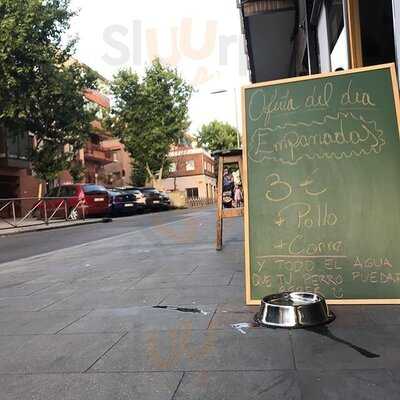 sluurpy
Oferta del día
Empanada
3 €
+ Pollo
+ Carne
Y TODO EL AGUA
QUE TU PERRO PUEDA
BEBER